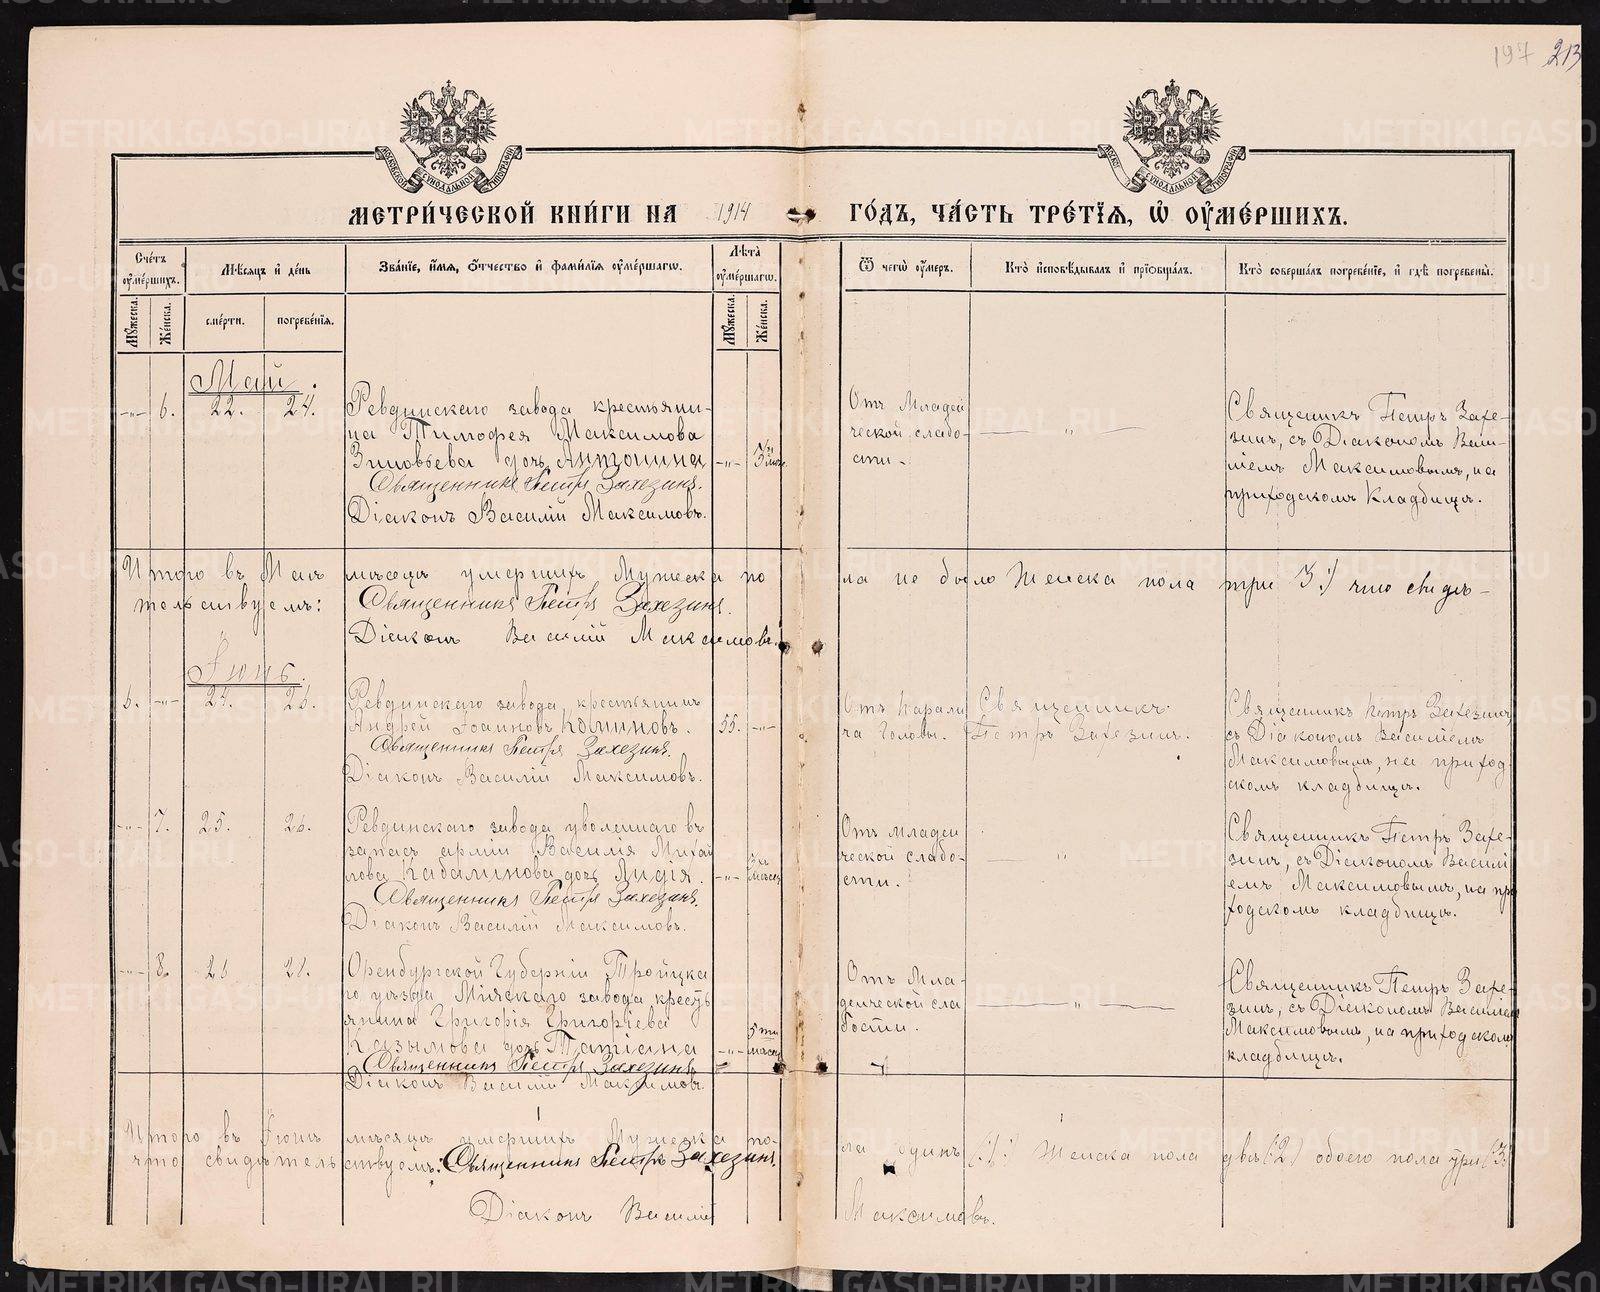 197 213
МОСКОВСКОЙ СѴНОДАЛЬНОЙ ТИПОГРАФІИ
МОСКОВСКОЙ СѴНОДАЛЬНОЙ ТИПОГРАФІИ
МЕТРИ́ЧЕСКОЙ КНИ́ГИ НА 1914 ГО́ДЪ, ЧА́СТЬ ТРЕ́ТІѦ, Ѡ҆ ОУ҆МЕ́РШИХЪ.
Сче́тъ оу҆ме́ршихъ.
Мѣ́сѧцъ и҆ де́нь
Зва́нїе, и҆́мѧ, ѻ҆́тчество и҆ фами́лїѧ оу҆ме́ршагѡ.
Лѣ́та оу҆ме́ршагѡ.
Ѿ чегѡ̀ оу҆́меръ.
Кто̀ и҆сповѣ́дывалъ и҆ прїѡбща́лъ.
Кто̀ соверша́лъ погребе́нїе, и҆ гдѣ̀ погребены̀.
Мꙋ́жеска. Же́нска. сме́рти. погребе́нїѧ. Мꙋ́жеска. Же́нска.
Май.
-"- 6. 22. 24.
Ревдинскаго завода крестьяни-
на Тимофея Максимова
Зиновьева дочь Антонина
Священникъ Петръ Захезинъ.
Діаконъ Василій Максимовъ.
-"-
Отъ младен
ческой слабо-
сти.
"
Священникъ Петръ Захе-
зинъ, съ Діакономъ Васи-
ліемъ Максимовымъ, на
приходскомъ кладбищѣ.
Итого въ Маѣ мѣсяцѣ умершихъ Мужеска по ла не было Женска пола три 3:) что свидѣ-
тельствуемъ:
Священникъ Петръ Захезинъ.
Діаконъ Василій Максимовъ.
Іюнь.
6. -"- 24. 26.
Ревдинскаго завода, крестьянинъ
Андрей Іоанновъ Колиновъ.
Священникъ Петръ Захезинъ.
Діаконъ Василій Максимовъ.
55. -"-
Отъ Парали
ча головы.
Священникъ
Петръ Захезинъ.
Священникъ Петръ Захезинъ,
съ Діакономъ Василіемъ
Максимовымъ, на приход
скомъ кладбищѣ.
-"- 7. 25. 26.
Ревдинскаго завода уволеннаго въ
запасъ арміи Василія Михай
лова Кабалинова дочь Лидія.
Священникъ Петръ Захезинъ.
Діаконъ Василій Максимовъ.
-"- 3хъ мѣсяц
Отъ младен
ческой слабо-
сти.
"
Священникъ Петръ Захе-
зинъ, съ Діакономъ Василі
емъ Максимовымъ, на при
ходскомъ кладбищѣ.
-"- 8.
Оренбургской Губерніи Тройцка
го, уѣзда Міяскаго завода кресть
янина Григорія Григоріева
Казымова дочь Татіана
Священникъ Петръ Захезинъ
Діаконъ Василій Максимовъ.
-"- 5ти мѣсяц
Отъ мла-
денческой сла
бости.
"
Священникъ Петръ Захе-
зинъ, съ Діакономъ Василіемъ
Максимовымъ, на приходскомъ
кладбищѣ.
Итого въ Іюнѣ мѣсяцѣ умершихъ Мужеска по- ла одинъ (:1:) Женска пола двѣ (:2) обоего пола три (:3:)
что свидѣтельствуемъ: Священникъ Петръ Захезинъ.
Діаконъ Василій Максимовъ.
METRIKI.GASO-URAL.RU